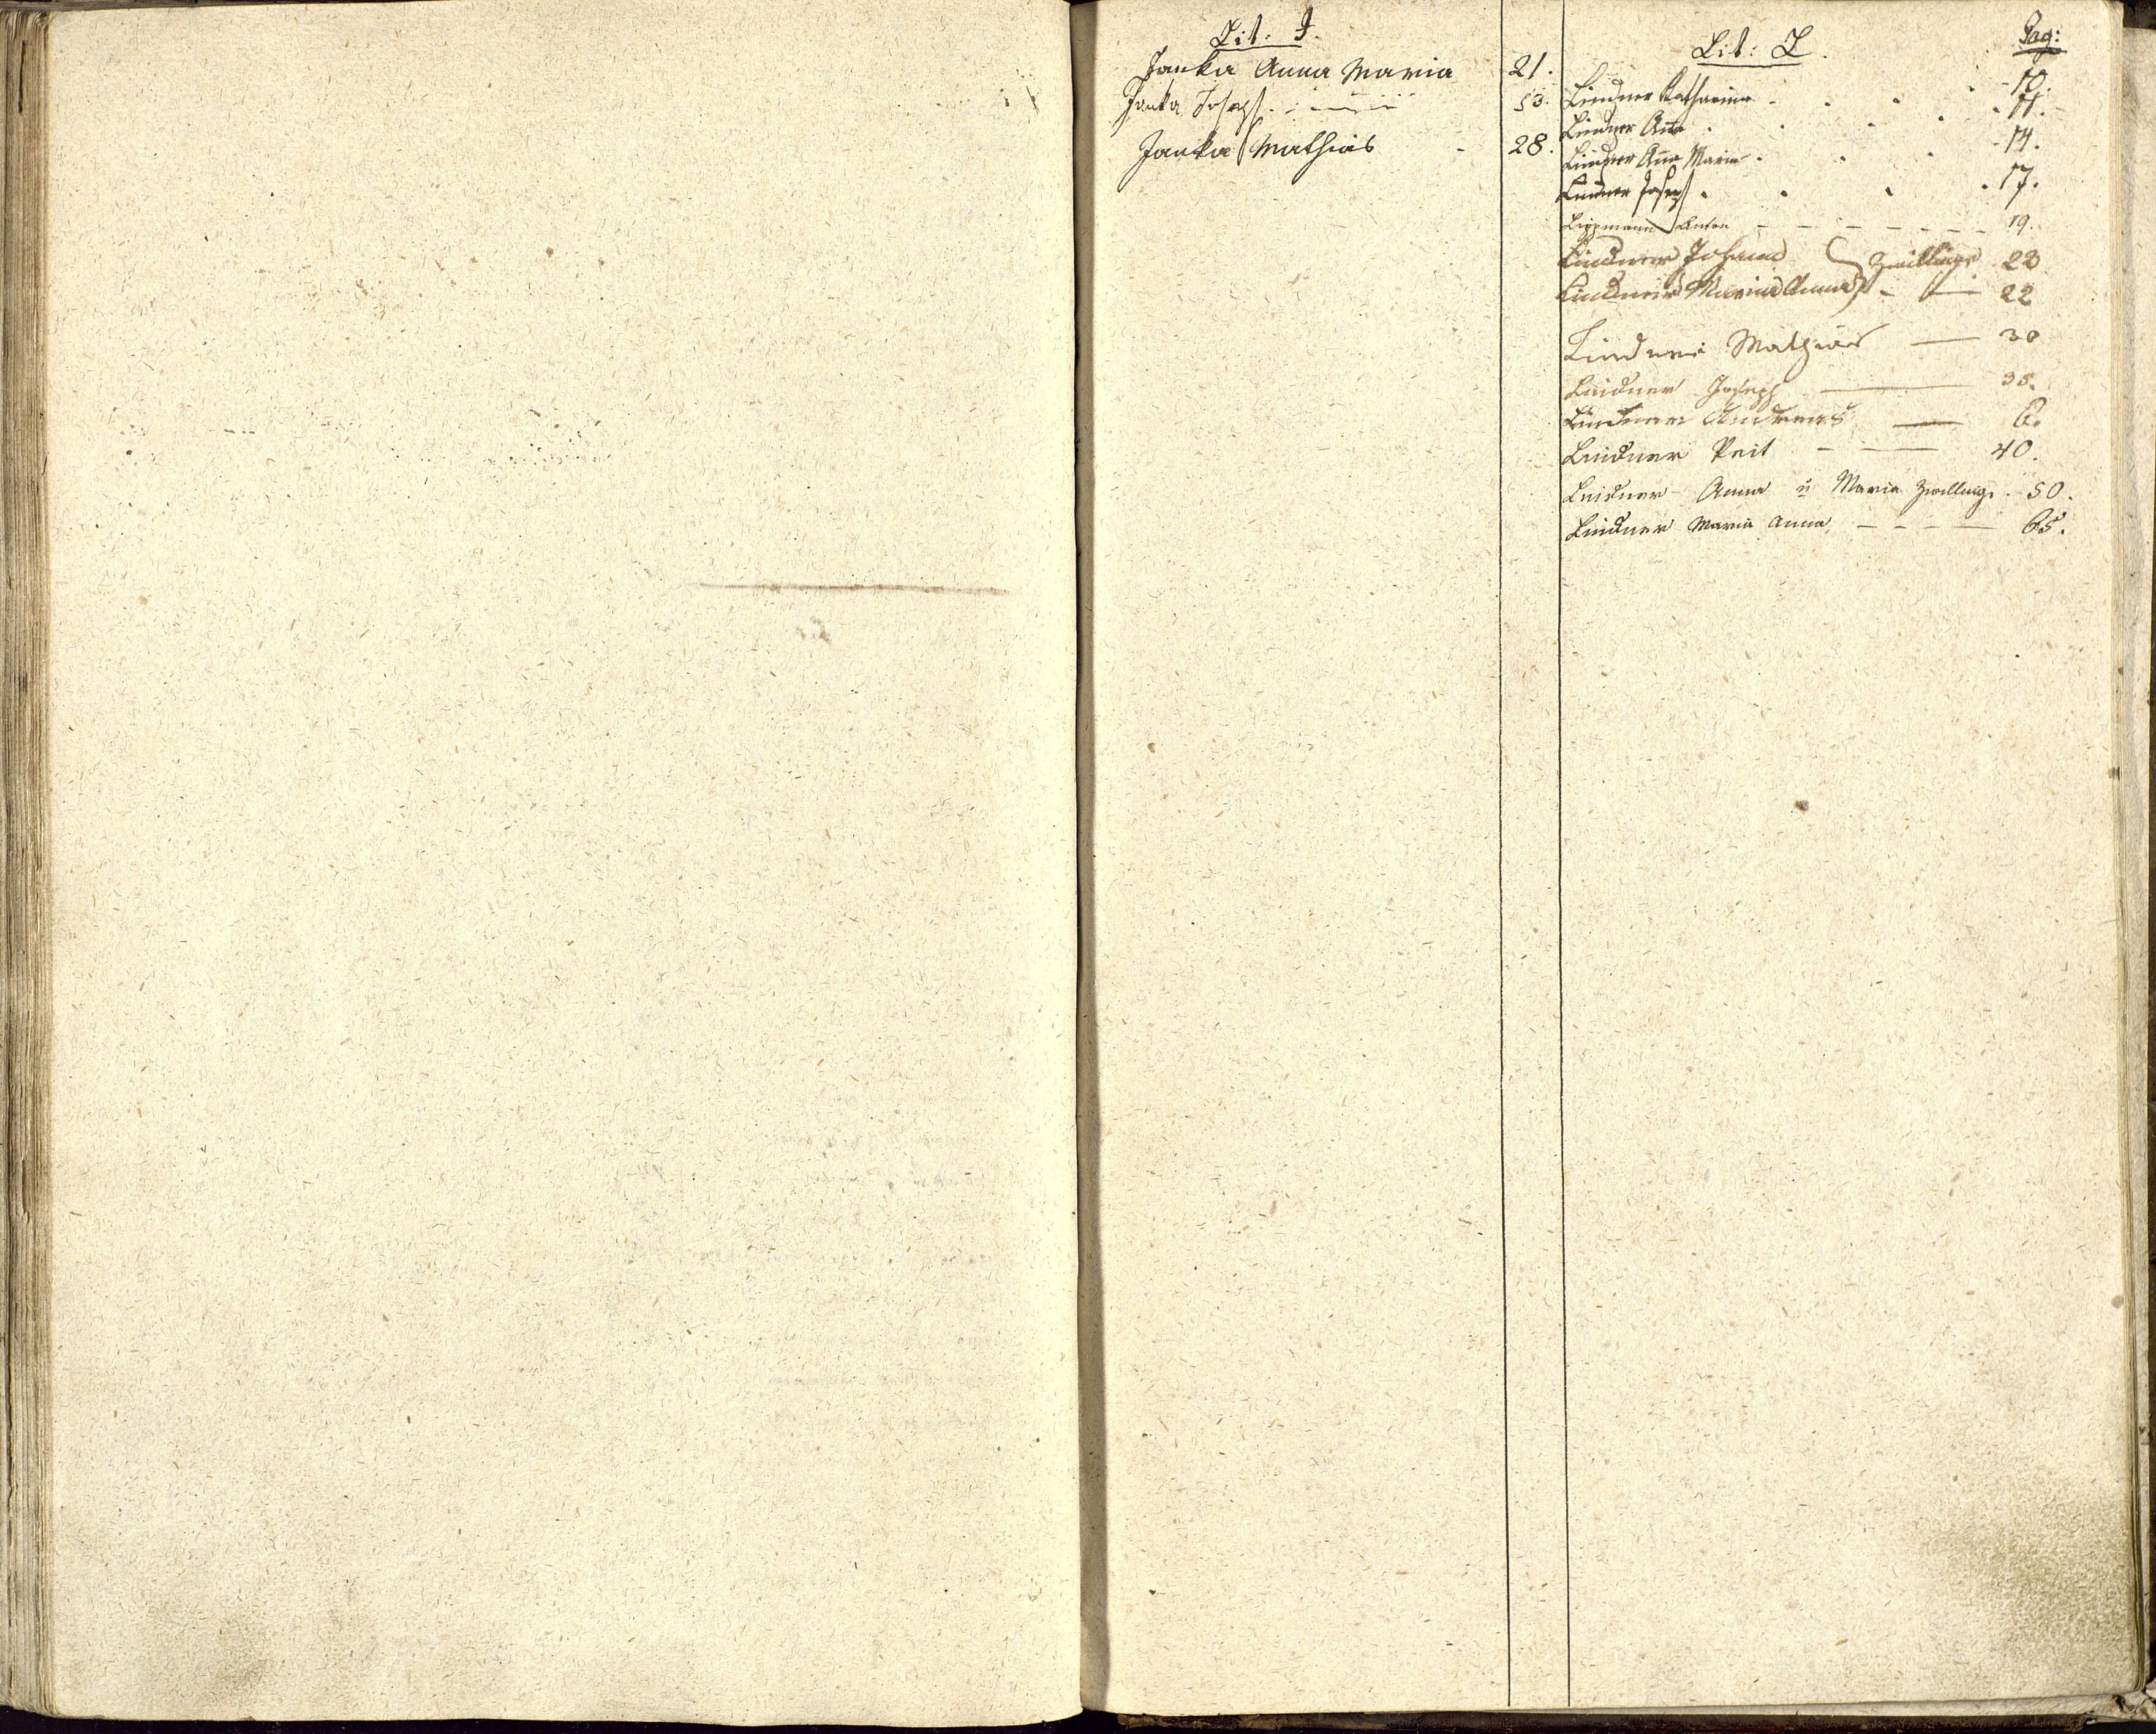 Lit: J.
Janka Anna Maria 21.
Janka Joseph 53.
Janka Mathias - 28.
Lit: L. Pag:
Lindner Katharina . . . . 10.
Lindner Aña . . . . . 11.
Lindner Aña Maria . . . . 14.
Lindner Joseph . . . . 17.
Lippmann Anton - - - - - - 19.
Lindner Johann } Zwillinge 22
Lindner Maria Anna } - — 22
Lindner Mathias — 30
Lindner Joseph — 35.
Lindner Andreas — 6.
Lindner Veit - — 40.
Lindner Anna u Maria Zwillinge . 50.
Lindner Maria Anna - - - — 65.